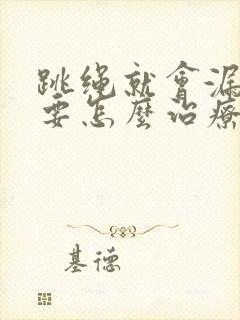 跳绳就會漏
要怎麼治療
基德